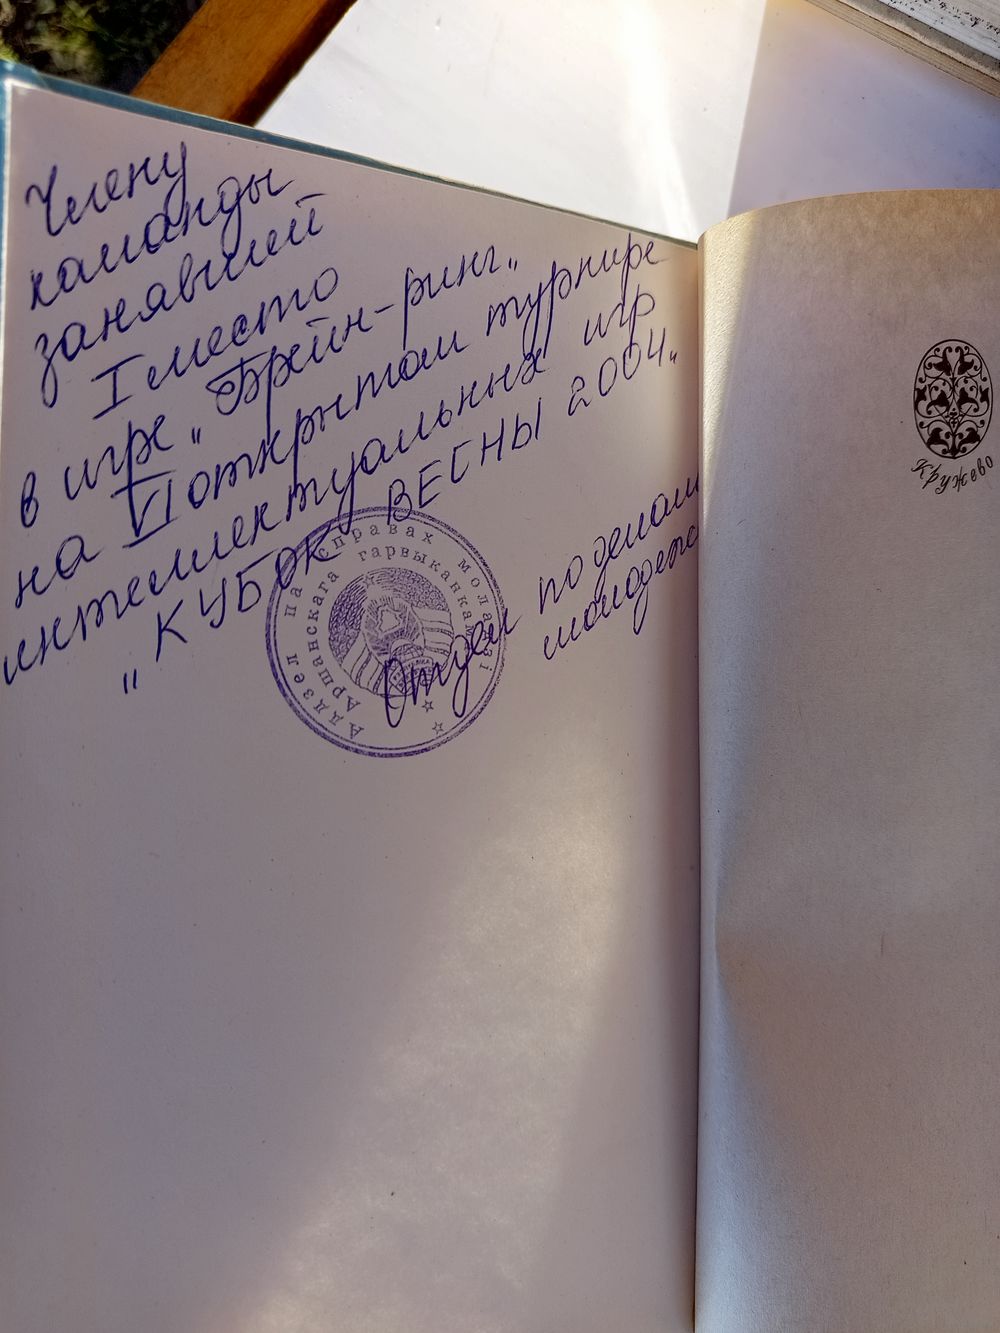 Члену
команды
занявшей
I место
в игре „Брейн-ринг"
на VI открытом турнире
интеллектуальных игр
„КУБОК ВЕСНЫ 2004"
Отдел по делам
молодеж
Аддзел па справах моладзі
Аршанскага гарвыканкама
Кружево